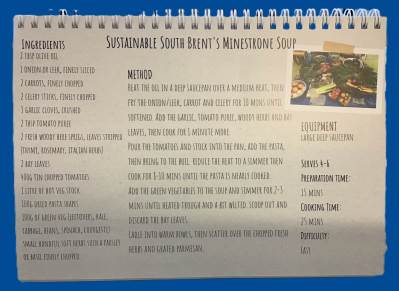 Sustainable South Brent's Minestrone Soup
Ingredients
1 tbsp olive oil
1 onion or leek, finely sliced
2 carrots, finely chopped
2 celery sticks, finely chopped
3 garlic cloves, crushed
2 tbsp tomato puree
2 fresh woody herb sprigs, leaves stripped
(thyme, rosemary, italian herbs)
2 bay leaves
400g tin chopped tomatoes
1 litre hot veg stock
100g dried pasta shapes
200g of green veg (leftovers, kale,
cabbage, beans, spinach, courgette)
Small handful soft herbs such as parsley
or basil finely chopped
Method
Heat the oil in a deep saucepan over a medium heat, then
fry the onion/leek, carrot and celery for 10 mins until
softened. Add the garlic, tomato puree, woody herbs and bay
leaves, then cook for 1 minute more.
Pour the tomatoes and stock into the pan, add the pasta,
then bring to the boil. Reduce the heat to a simmer then
cook for 8-10 mins until the pasta is nearly cooked.
Add the green vegetables to the soup and simmer for 2-3
mins until heated through and a bit wilted. Scoop out and
discard the bay leaves.
Ladle into warm bowls, then scatter over the chopped fresh
herbs and grated parmesan.
Equipment
Large deep saucepan
Serves 4-6
Preparation time:
15 mins
Cooking Time:
25 mins
Difficulty:
Easy